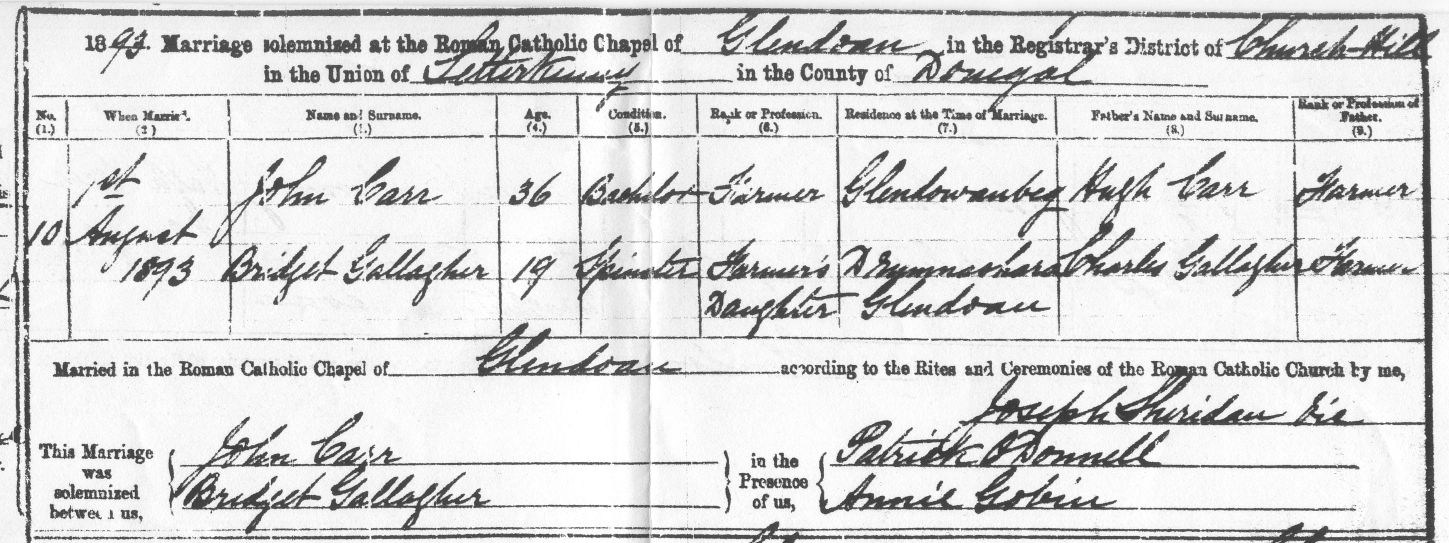 1893. Marriage solemnized at the Roman Catholic Chapel of Glendoan in the Registrar's District of Church-Hill
in the Union of Letterkenny in the County of Donegal
No. When Married. Name and Surname. Age. Condition. Rank or Profession. Residence at the Time of Marriage. Father's Name and Surname. Rank or Profession of Father.
(1.) (2.) (3.) (4.) (5.) (6.) (7.) (8.) (9.)
1st John Carr 36 Bachelor Farmer Glendowanbeg Hugh Carr Farmer
10 August
1893 Bridget Gallagher 19 Spinster Farmer's Drumnaohara Charles Gallagher Farmer
Daughter Glendoan
Married in the Roman Catholic Chapel of Glendoan according to the Rites and Ceremonies of the Roman Catholic Church by me,
Joseph Sheridan
This Marriage was solemnized between us, John Carr in the Presence of us, Patrick O'Donnell
Bridget Gallagher Annie Gobin